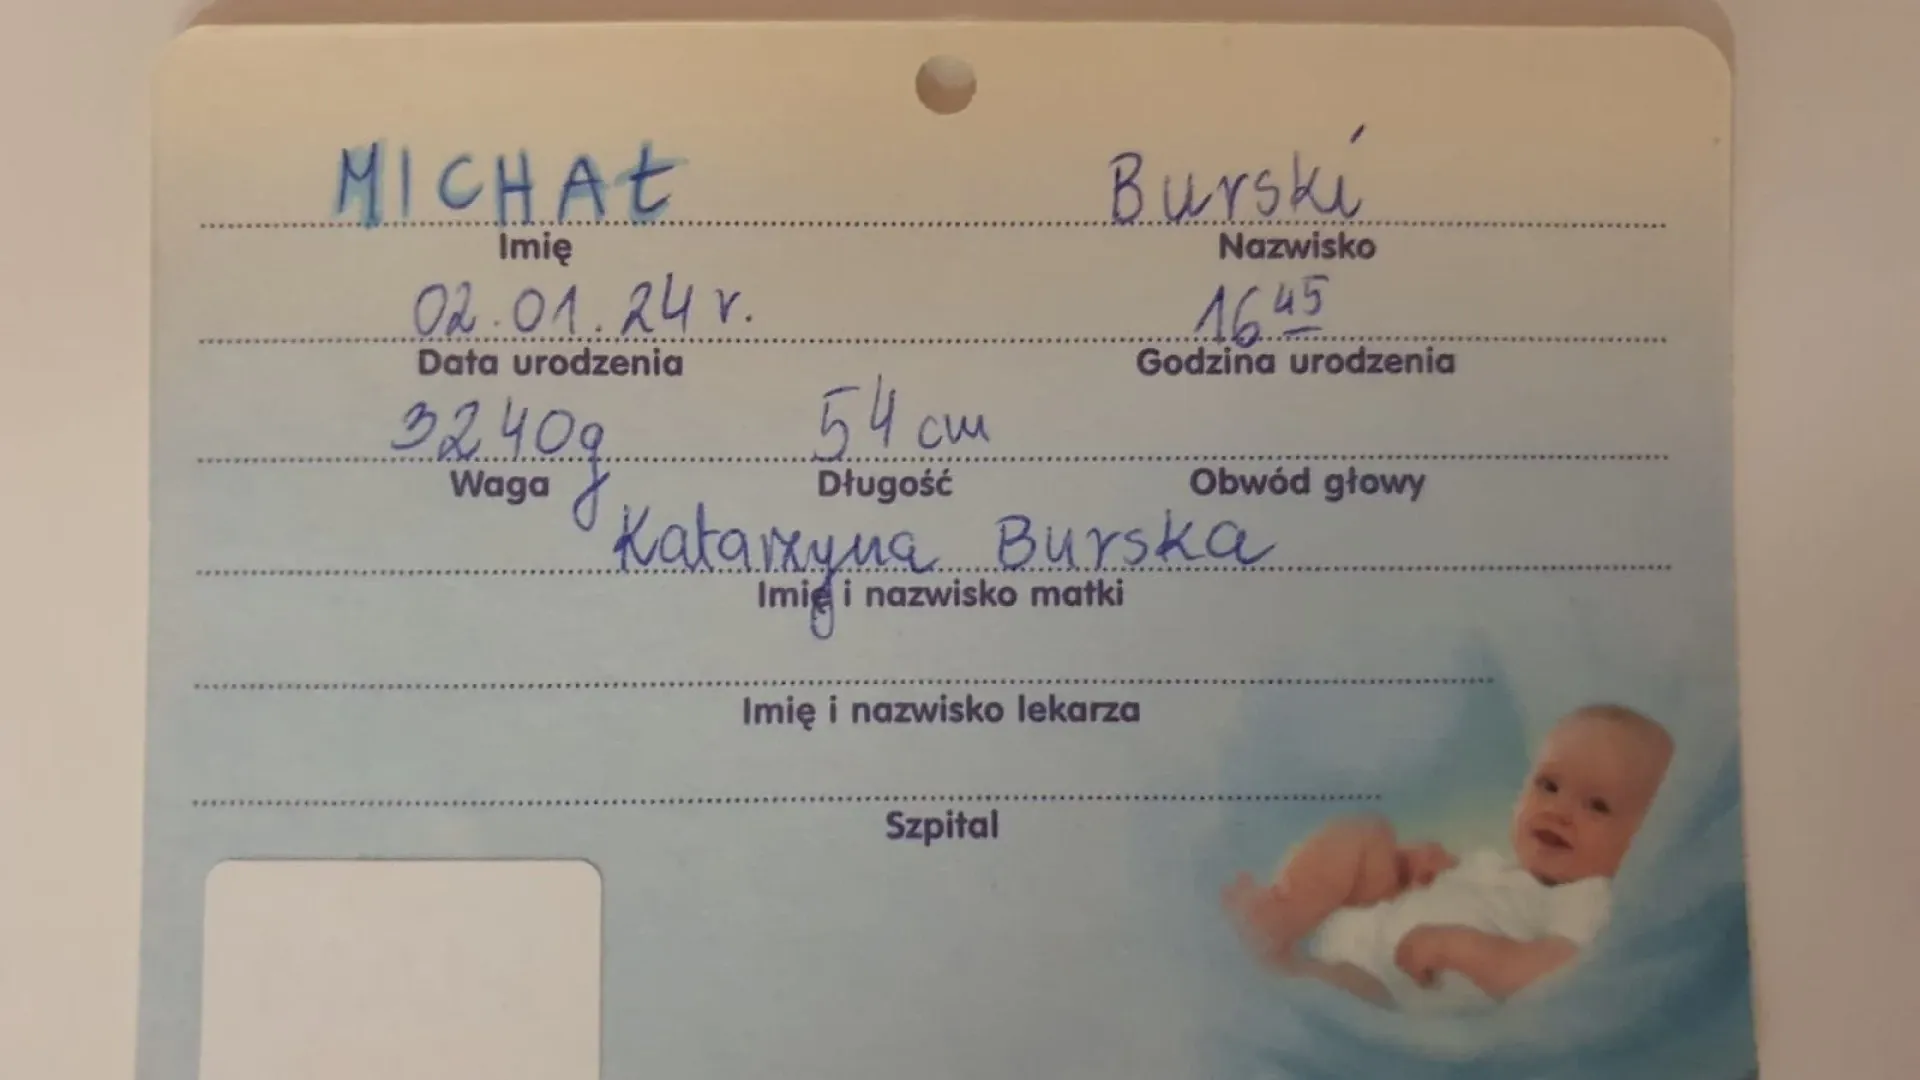 MICHAŁ Burski
Imię Nazwisko
02.01.24 r. 16 45
Data urodzenia Godzina urodzenia
3240g 54 cm
Waga Długość Obwód głowy
Katarzyna Burska
Imię i nazwisko matki
Imię i nazwisko lekarza
Szpital